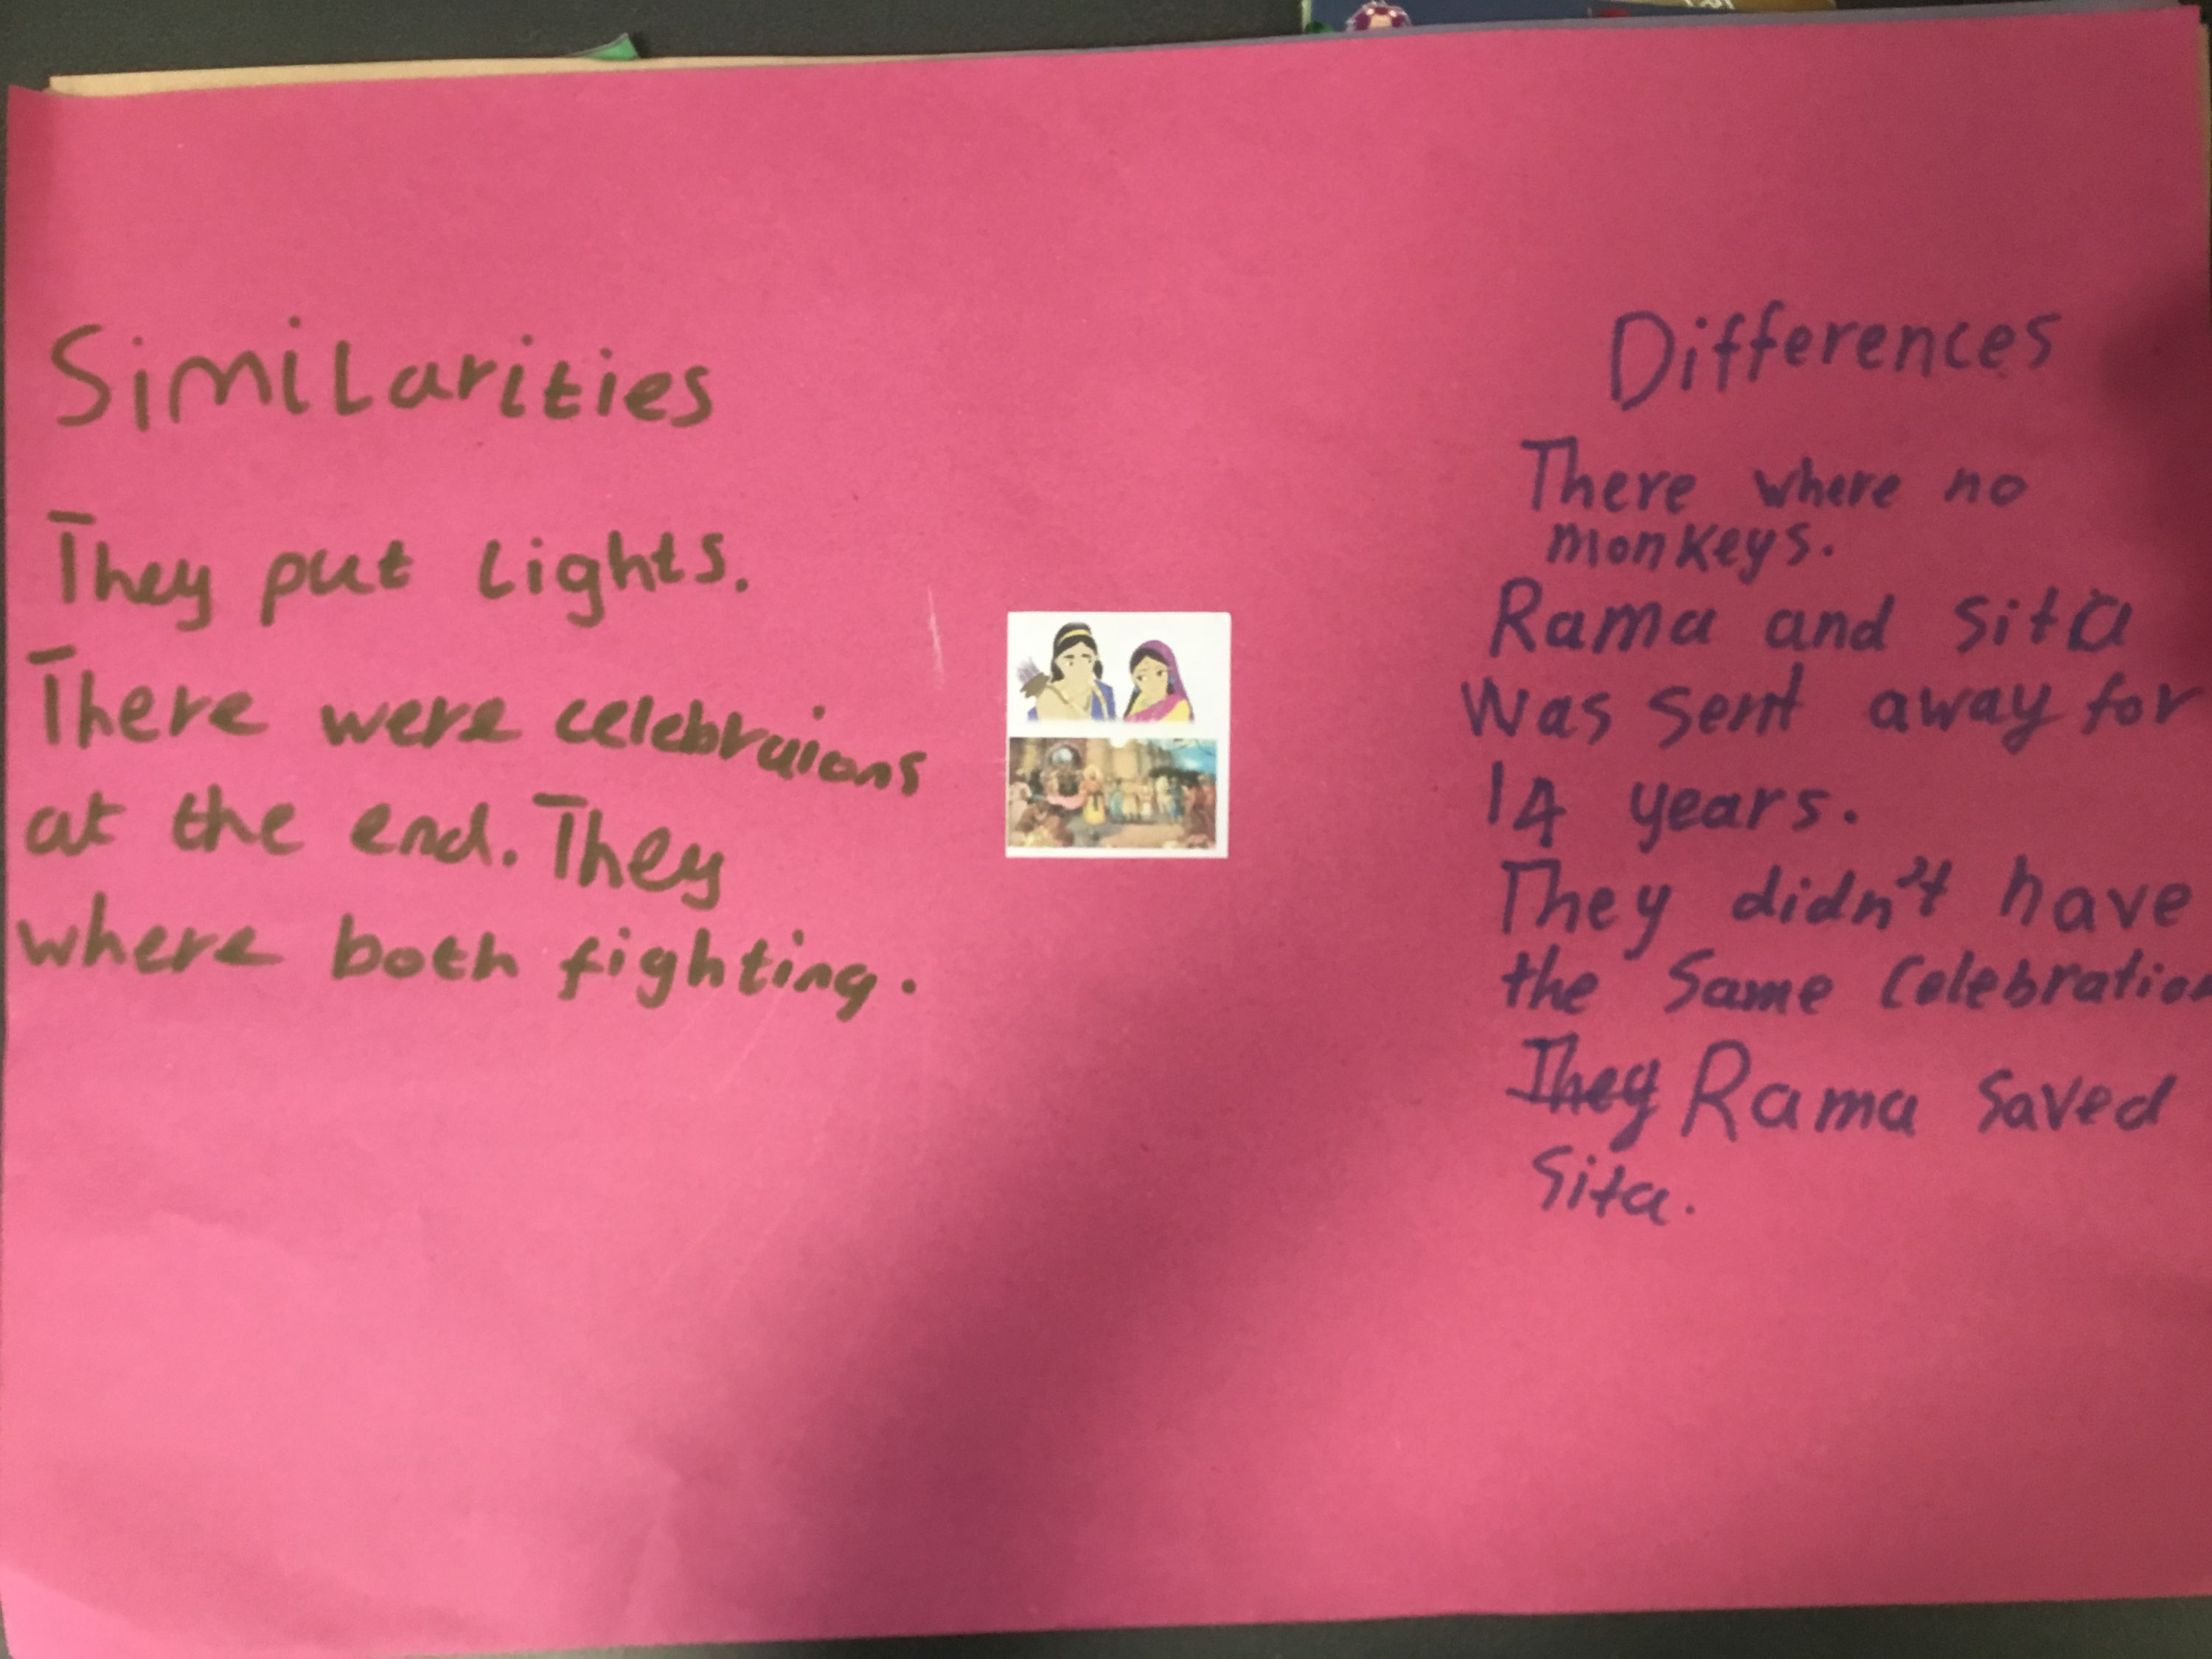 Similarities
They put Lights.
There were celebraions
at the end. They
where both fighting.
Differences
There where no
monkeys.
Rama and Sita
was sent away for
14 years.
They didn't have
the same Celebration
They Rama saved
Sita.